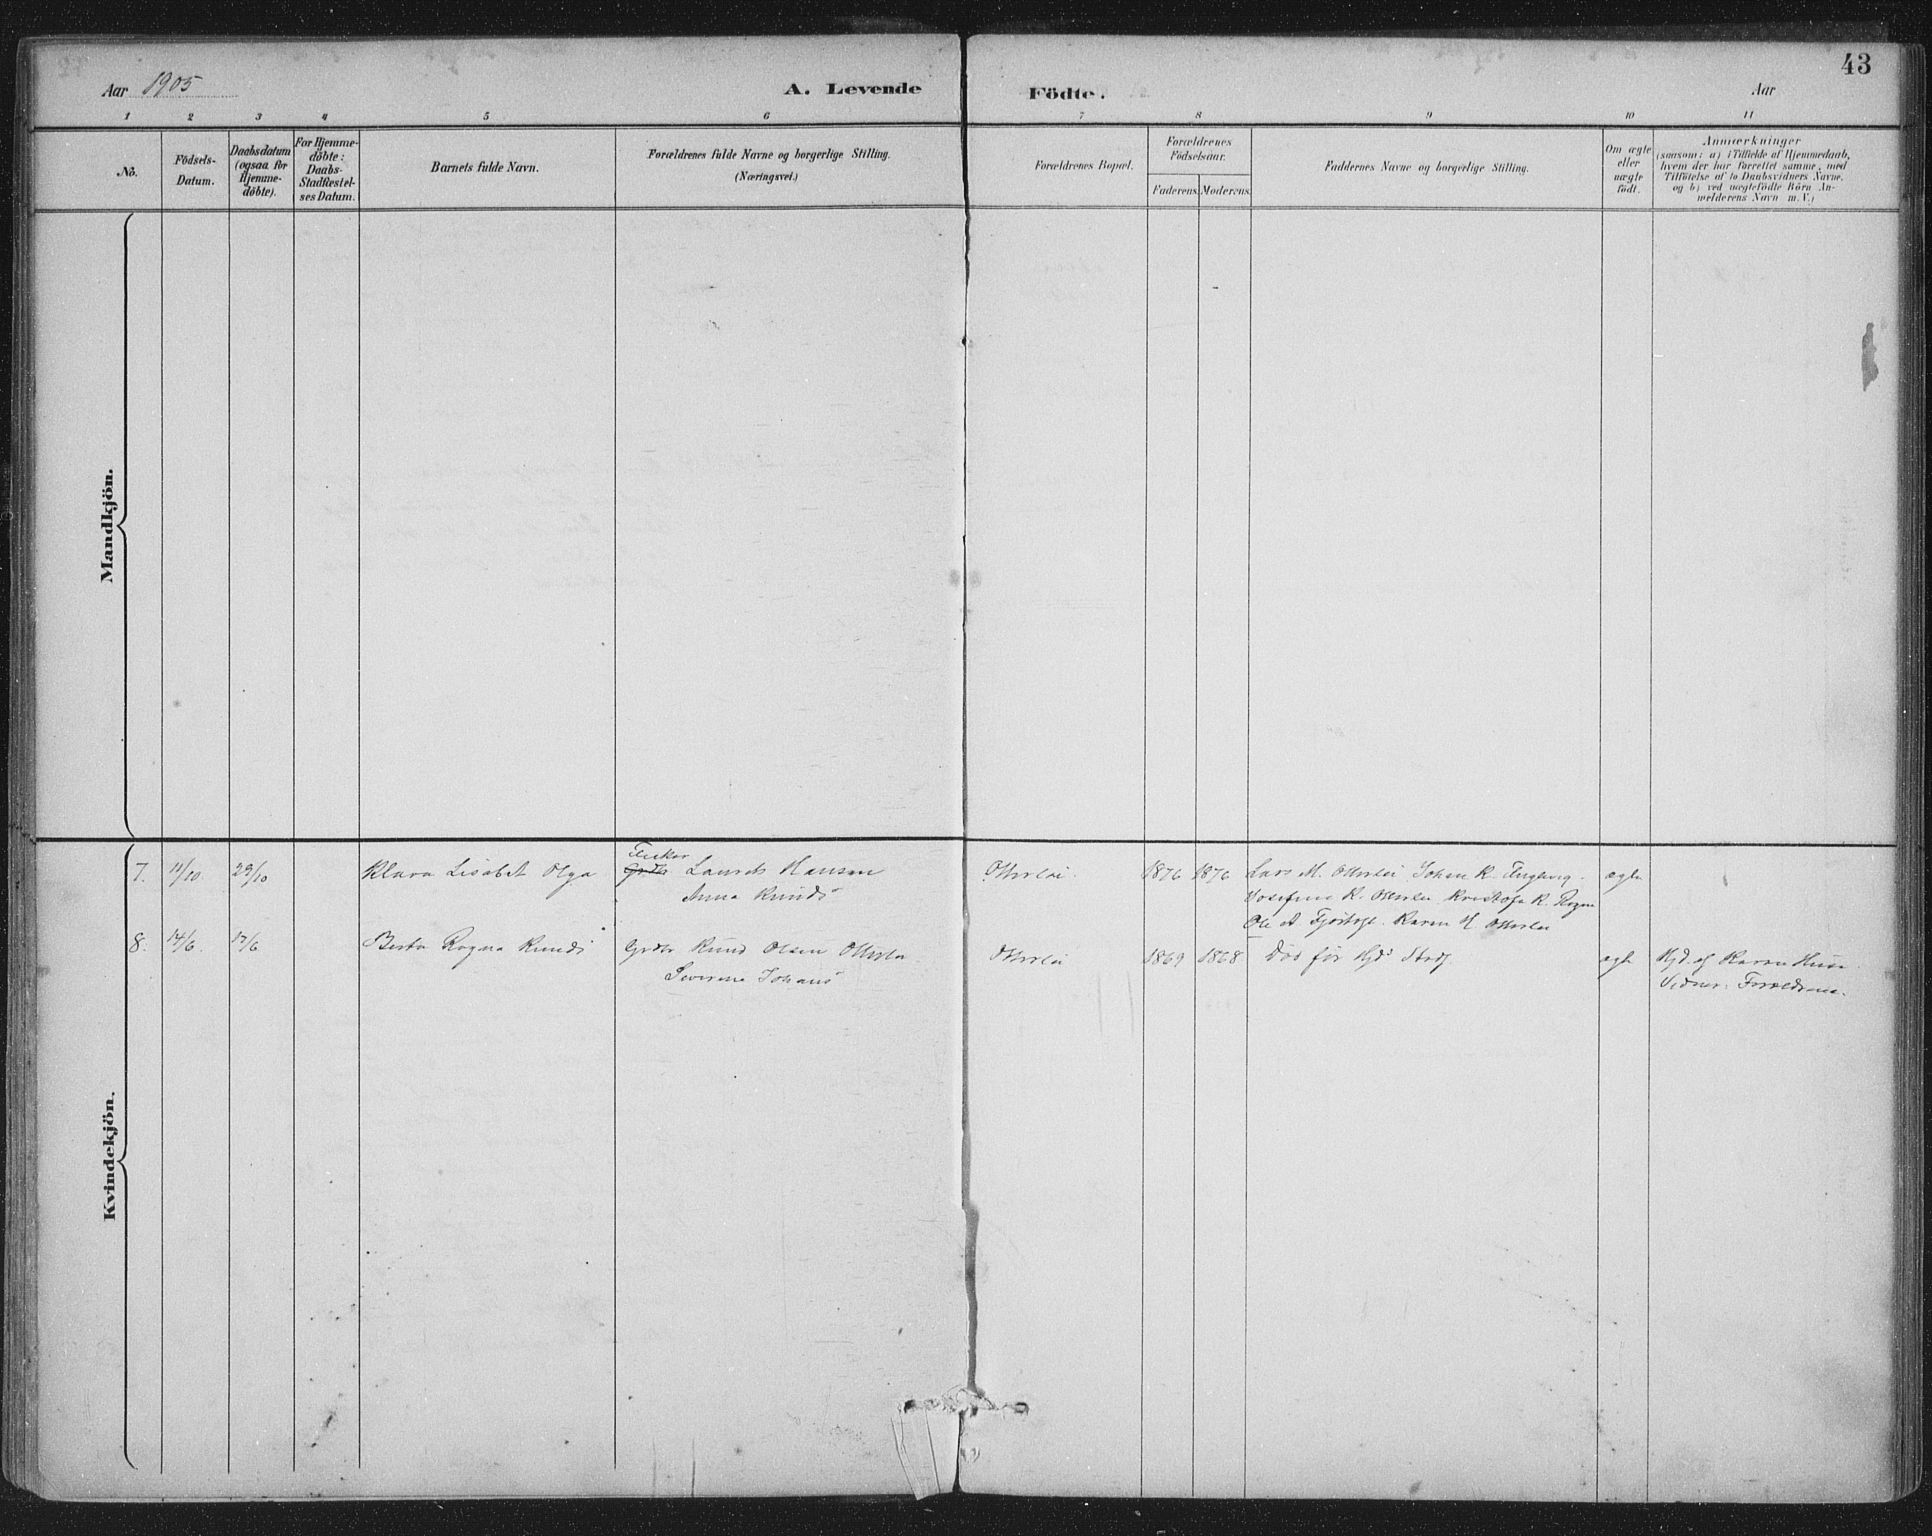 43
Aar 1905 A. Levende Födte. Aar
1 2 3 4 5 6 7 8 9 10 11
No.
Födsels-
Datum.
Daabsdatum
(ogsaa for
Hjemme-
döbte).
For Hjemme-
döbte:
Daabs-
Stadfæstel-
ses Datum.
Barnets fulde Navn.
Forældrenes fulde Navne og borgerlige Stilling.
(Næringsvei.)
Forældrenes Bopæl.
Forældrenes
Födselsaar.
Faderens. Moderens.
Faddernes Navne og borgerlige Stilling.
Om ægte
eller
uægte
födt.
Anmærkninger
(saasom: a) i Tilfælde af Hjemmedaab,
hvem der har forrettet samme, med
Tilföielse af to Daabsvidners Navne,
og b) ved uægtefödte Börn An-
melderens Navn m. V.)
Mandkjön.
Kvindekjön.
7. 11/10 29/10 Klara Lisabet Olga
Fisker
Grdbr Laurits Hansen
Anna Knuds
Otterlei 1876 1876
Lars M. Otterlei Johan K.
Josefine K. Otterlei K.
Ole A. Fjörtoft. Karen H. Otterlei
ægte
8. 14/6. 17/6 Berta Ragna Knuds
Grdbr Knud Olsen Otterlei
Severine Johans
Otterlei 1869 1868 Död før Hjd's Stadf. ægte
Hjd. af Karen Huse
Vidner: Forældrene.